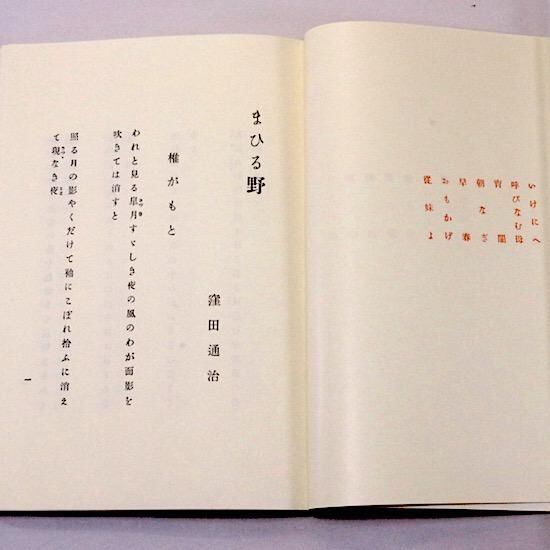 いけにへ
呼びなむ母
宵闇
朝なぎ
早春
おもかげ
從妹よ
まひる野
窪田通治
椎がもと
われと見る皐月すゞしき夜の風のわが面影を
吹きては消すと
照る月の影やくだけて袖にこぼれ拾ふに消え
て現なき夜
一